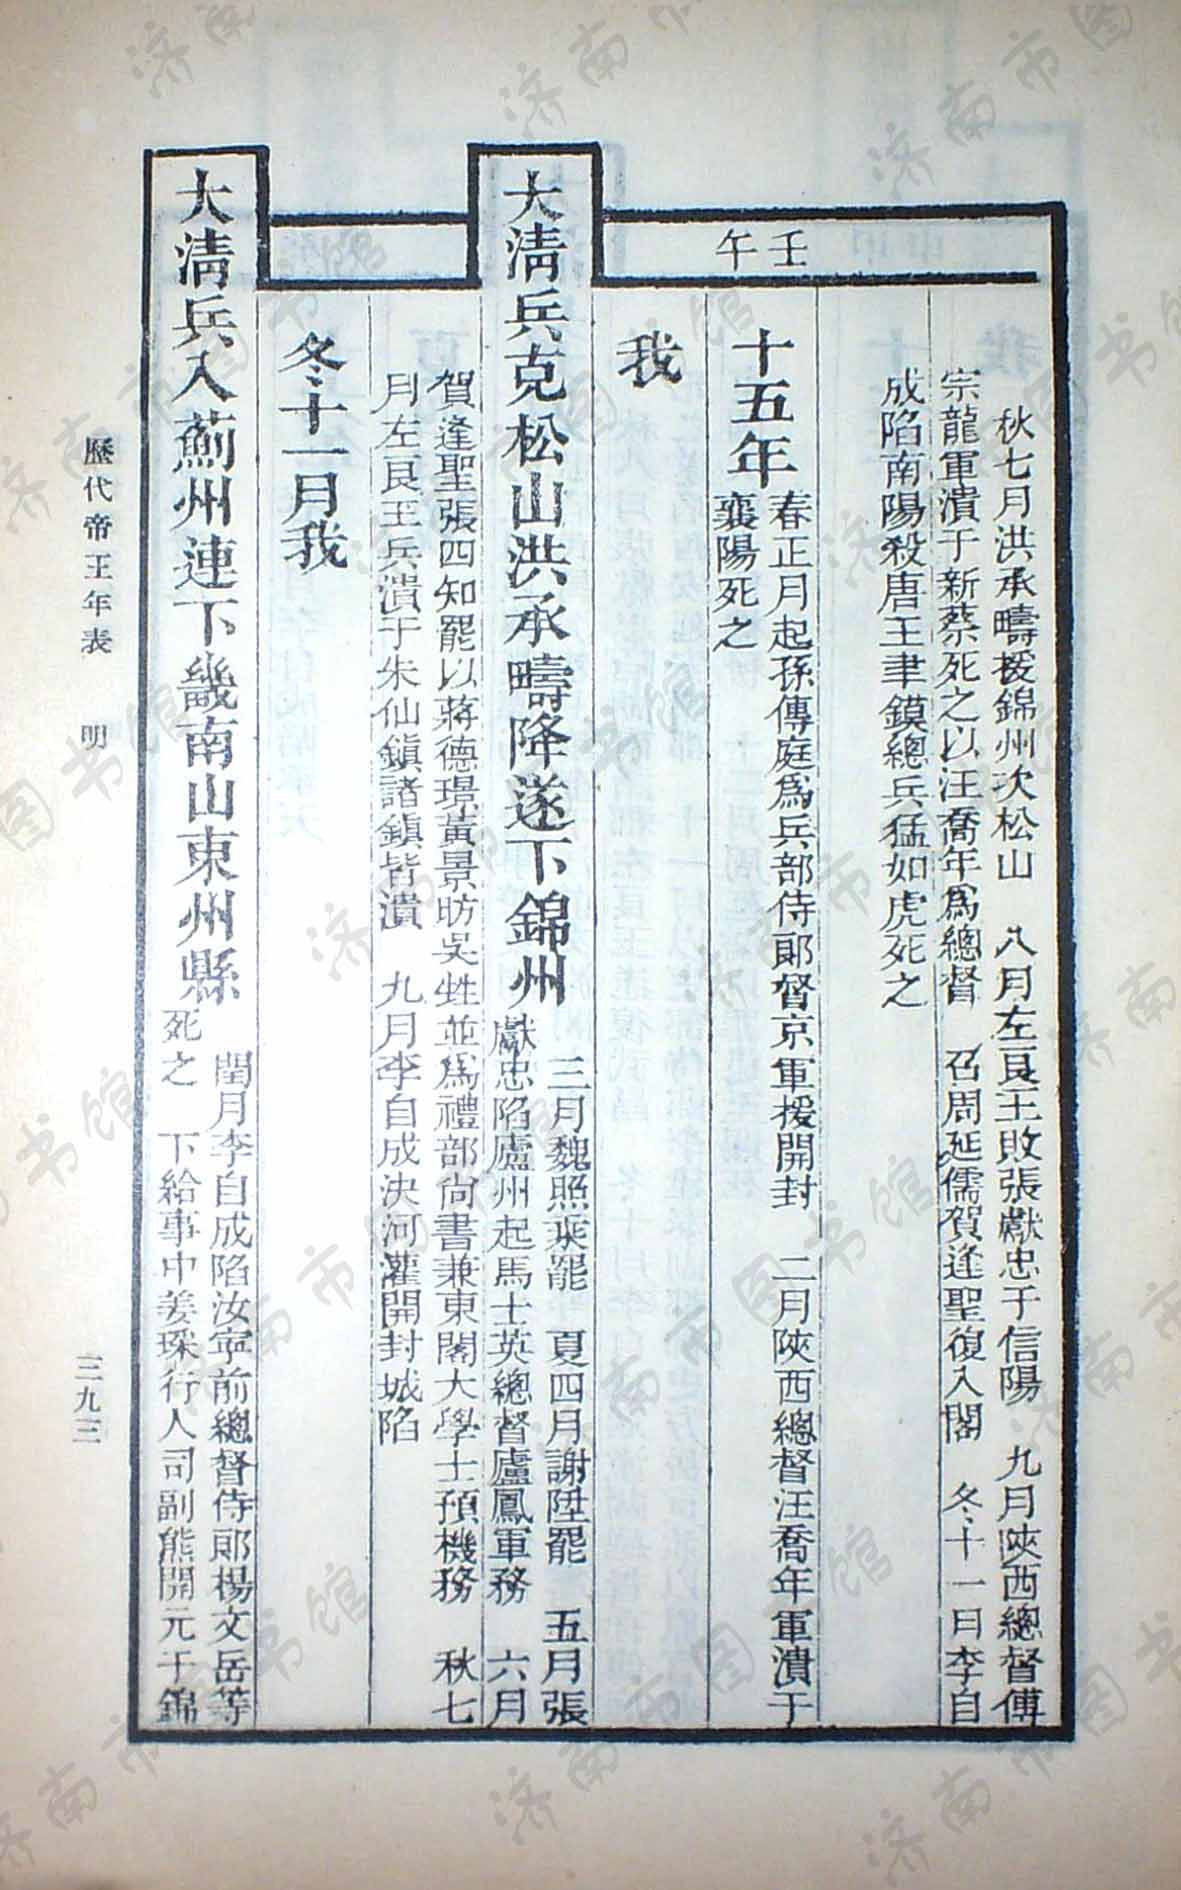 秋七月洪承疇援錦州次松山　八月左良玉敗張獻忠于信陽　九月陝西總督傅
宗龍軍潰于新蔡死之以汪喬年爲總督　召周延儒賀逢聖復入閣　冬十一月李自
成陷南陽殺唐王聿鏌總兵猛如虎死之
壬午
十五年
春正月起孫傳庭爲兵部侍郎督京軍援開封　二月陝西總督汪喬年軍潰于
襄陽死之
我
大淸兵克松山洪承疇降遂下錦州
三月魏照乘罷　夏四月謝陞罷　五月張
獻忠陷廬州起馬士英總督廬鳳軍務　六月
賀逢聖張四知罷以蔣德璟黃景昉吳甡並爲禮部尚書兼東閣大學士預機務　秋七
月左良玉兵潰于朱仙鎭諸鎭皆潰　九月李自成決河灌開封城陷
冬十一月我
大淸兵入薊州連下畿南山東州縣
閏月李自成陷汝寧前總督侍郎楊文岳等
死之　下給事中姜埰行人司副熊開元于錦
歷代帝王年表　明
三九三
济南市图书馆